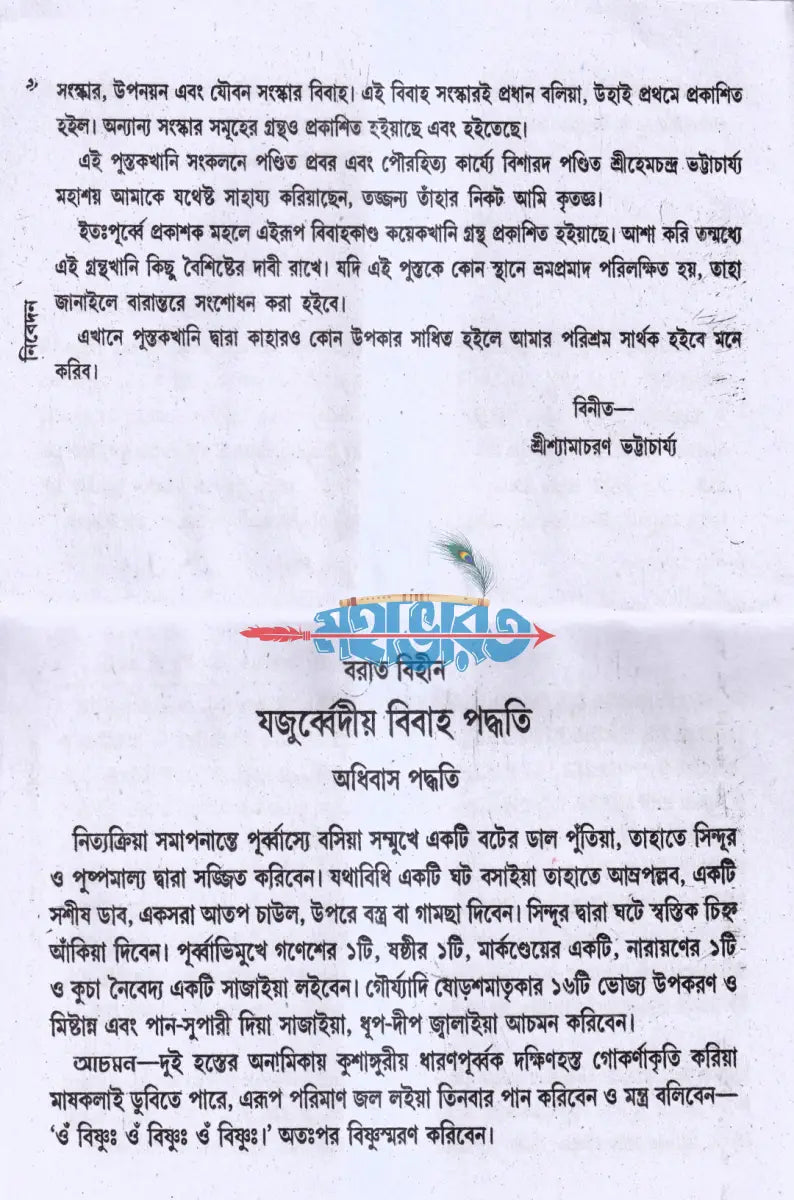 ৩
সংস্কার, উপনয়ন এবং যৌবন সংস্কার বিবাহ। এই বিবাহ সংস্কারই প্রধান বলিয়া, উহাই প্রথমে প্রকাশিত
হইল। অন্যান্য সংস্কার সমূহের গ্রন্থও প্রকাশিত হইয়াছে এবং হইতেছে।
এই পুস্তকখানি সংকলনে পণ্ডিত প্রবর এবং পৌরহিত্য কার্য্যে বিশারদ পণ্ডিত শ্রীহেমচন্দ্র ভট্টাচার্য্য
মহাশয় আমাকে যথেষ্ট সাহায্য করিয়াছেন, তজ্জন্য তাঁহার নিকট আমি কৃতজ্ঞ।
ইতঃপূর্ব্বে প্রকাশক মহলে এইরূপ বিবাহকাণ্ড কয়েকখানি গ্রন্থ প্রকাশিত হইয়াছে। আশা করি তন্মধ্যে
এই গ্রন্থখানি কিছু বৈশিষ্টের দাবী রাখে। যদি এই পুস্তকে কোন স্থানে ভ্রমপ্রমাদ পরিলক্ষিত হয়, তাহা
জানাইলে বারান্তরে সংশোধন করা হইবে।
এখানে পুস্তকখানি দ্বারা কাহারও কোন উপকার সাধিত হইলে আমার পরিশ্রম সার্থক হইবে মনে
করিব।
নিবেদন
বিনীত—
শ্রীশ্যামাচরণ ভট্টাচার্য্য
মহাভারত
বরাত বিহীন
যজুর্ব্বেদীয় বিবাহ পদ্ধতি
অধিবাস পদ্ধতি
নিত্যক্রিয়া সমাপনান্তে পূর্ব্বাস্যে বসিয়া সম্মুখে একটি বটের ডাল পুঁতিয়া, তাহাতে সিন্দূর
ও পুষ্পমাল্য দ্বারা সজ্জিত করিবেন। যথাবিধি একটি ঘট বসাইয়া তাহাতে আম্রপল্লব, একটি
সশীষ ডাব, একসরা আতপ চাউল, উপরে বস্ত্র বা গামছা দিবেন। সিন্দূর দ্বারা ঘটে স্বস্তিক চিহ্ন
আঁকিয়া দিবেন। পূর্ব্বাভিমুখে গণেশের ১টি, ষষ্ঠীর ১টি, মার্কণ্ডেয়ের একটি, নারায়ণের ১টি
ও কুচা নৈবেদ্য একটি সাজাইয়া লইবেন। গৌর্য্যাদি ষোড়শমাতৃকার ১৬টি ভোজ্য উপকরণ ও
মিষ্টান্ন এবং পান-সুপারী দিয়া সাজাইয়া, ধূপ-দীপ জ্বালাইয়া আচমন করিবেন।
আচমন—দুই হস্তের অনামিকায় কুশাঙ্গুরীয় ধারণপূর্ব্বক দক্ষিণহস্ত গোকর্ণাকৃতি করিয়া
মাষকলাই ডুবিতে পারে, এরূপ পরিমাণ জল লইয়া তিনবার পান করিবেন ও মন্ত্র বলিবেন—
‘ওঁ বিষ্ণুঃ ওঁ বিষ্ণুঃ ওঁ বিষ্ণুঃ।’ অতঃপর বিষ্ণুস্মরণ করিবেন।